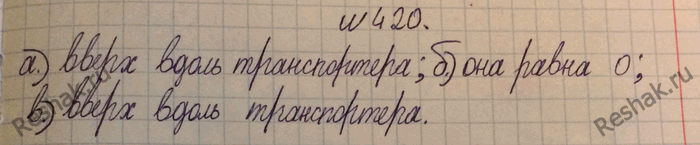 №420.
а.) вверх вдоль транспортера; б.) она равна 0;
в.) вверх вдоль транспортера.
Reshak.ru
Reshak.ru